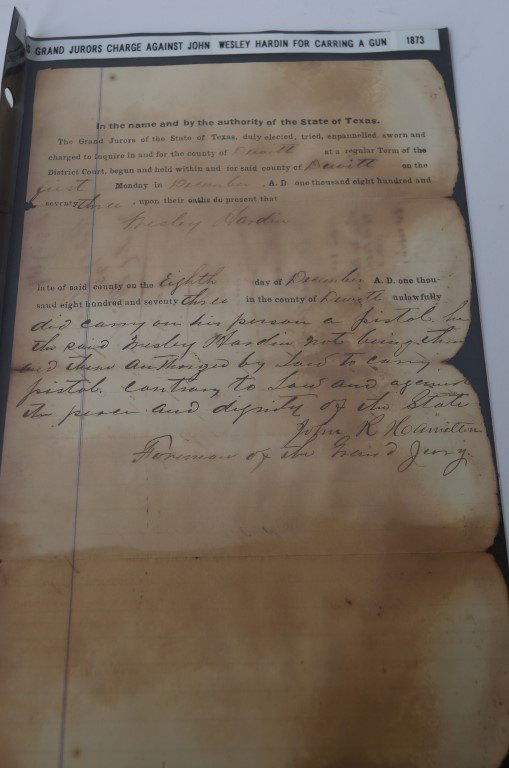 GRAND JURORS CHARGE AGAINST JOHN WESLEY HARDIN FOR CARRING A GUN 1873
In the name and by the authority of the State of Texas.
The Grand Jurors of the State of Texas, duly elected, tried, empannelled, sworn and
charged to inquire in and for the county of Dewitt at a regular Term of the
District Court, begun and held within and for said county of Dewitt on the
first Monday in December, A. D. one thousand eight hundred and
seventy three, upon their oaths do present that
Wesley Hardin
late of said county on the Eighth day of December A. D. one thou-
sand eight hundred and seventy three in the county of Dewitt unlawfully
did carry on his person a pistol he
the said Wesley Hardin not being then
and there authorized by Law to carry
pistol contrary to Law and against
the peace and dignity of the State
John R Hamilton
Foreman of the Grand Jury.